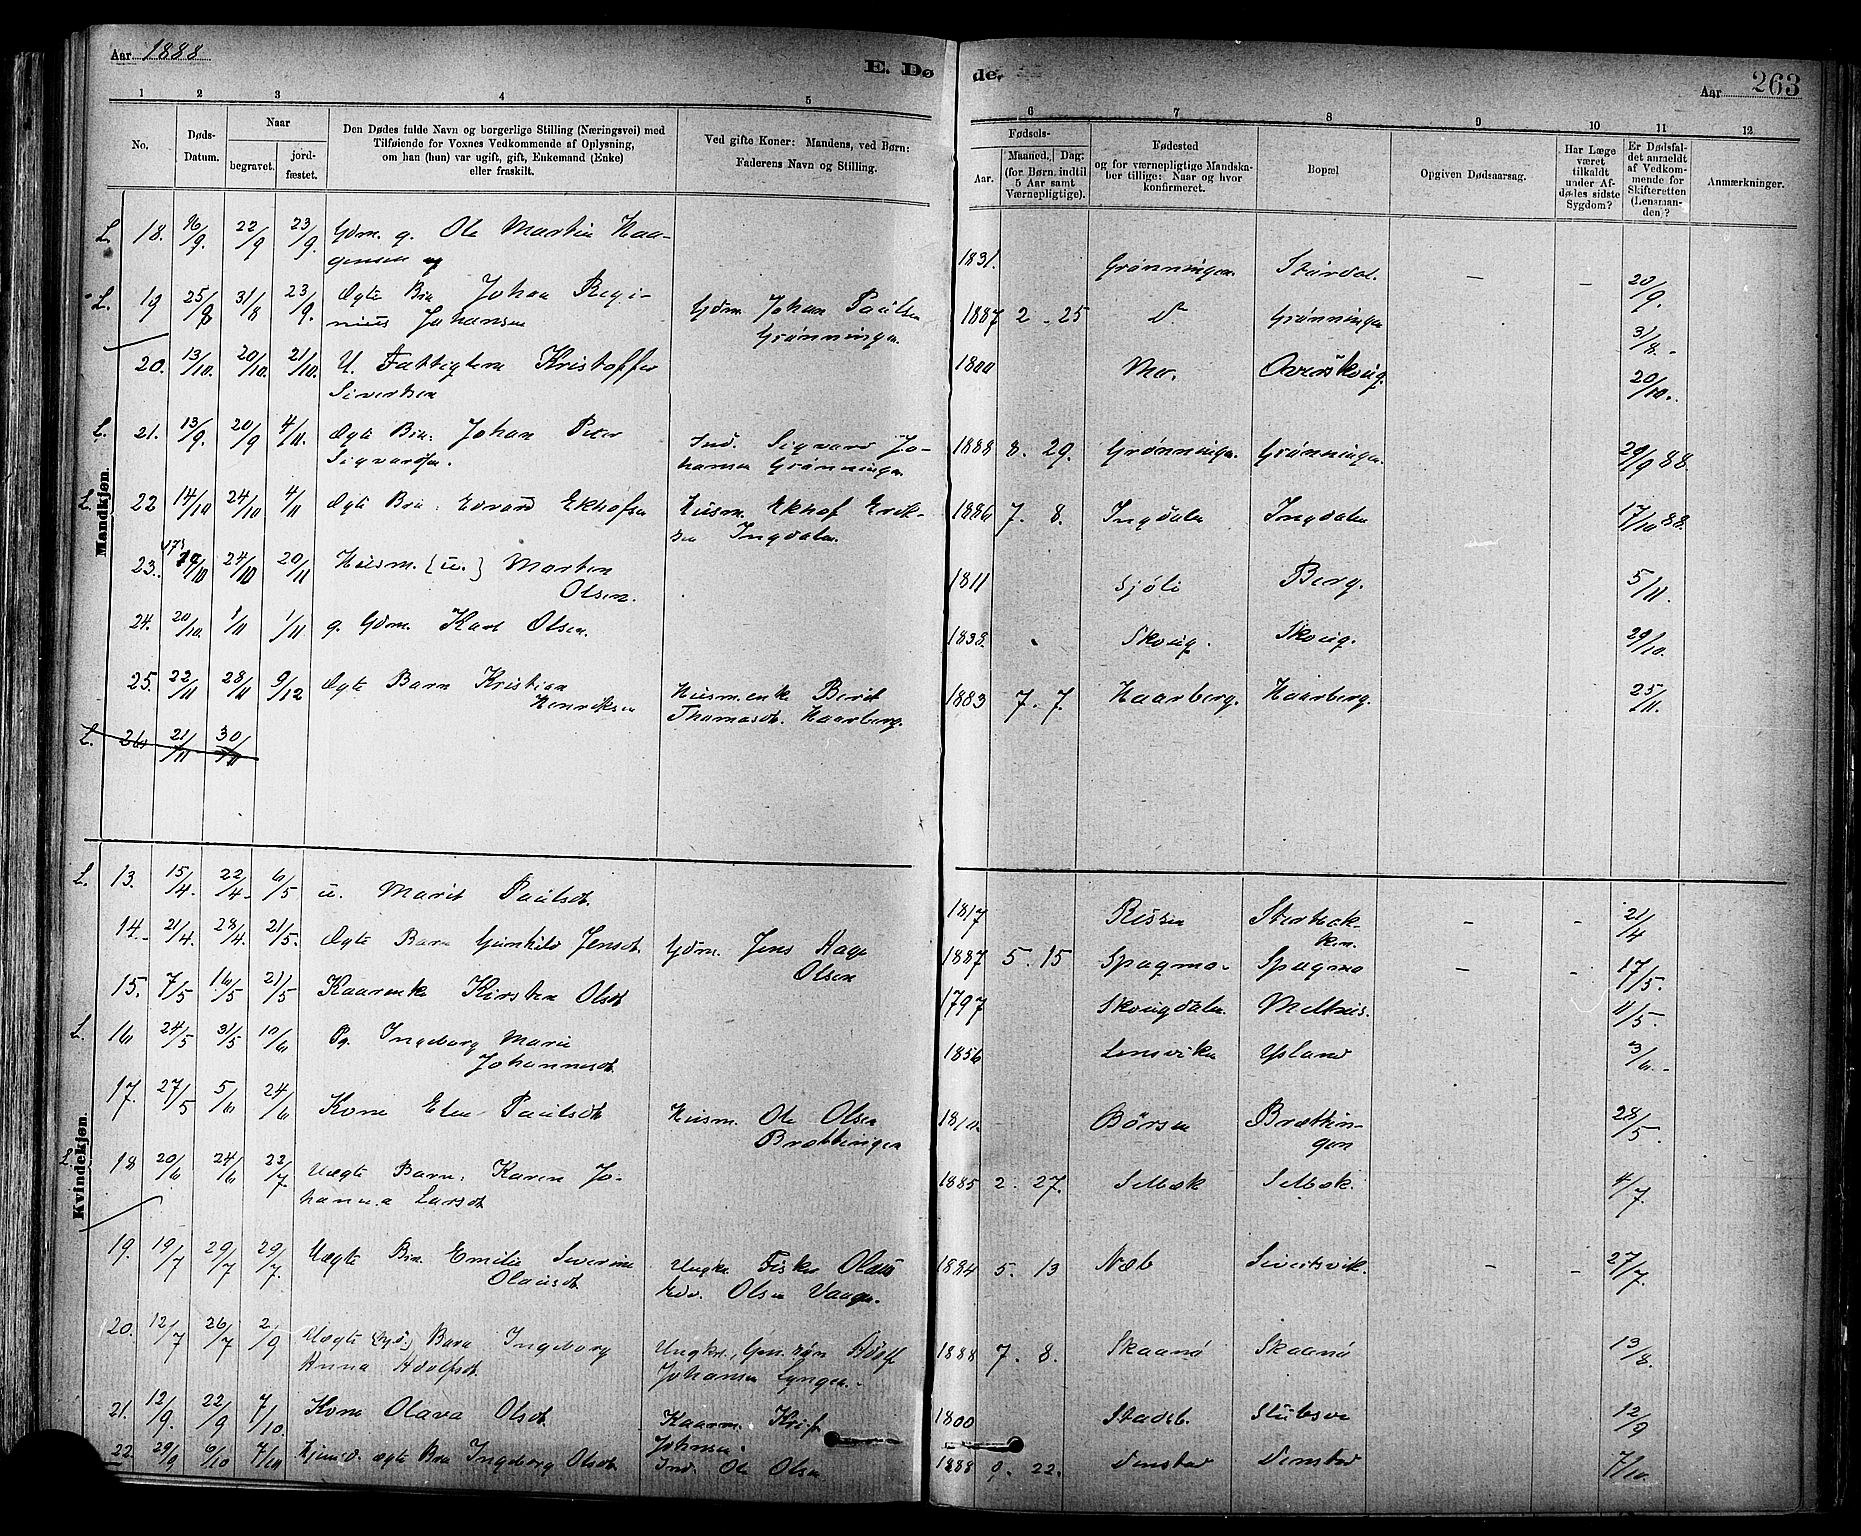 Aar 1888
E. Døde.
Aar 263
1 2 3 4 5 6 7 8 9 10 11 12
No.
Døds-Datum.
Naar
begravet.
jord-fæstet.
Den Dødes fulde Navn og borgerlige Stilling (Næringsvei) med
Tilføiende for Voxnes Vedkommende af Oplysning,
om han (hun) var ugift, gift, Enkemand (Enke)
eller fraskilt.
Ved gifte Koner: Mandens, ved Børn:
Faderens Navn og Stilling.
Fødsels-
Aar.
Maaned. Dag:
(for Børn indtil
5 Aar samt
Værnepligtige).
Fødested
og for værnepligtige Mandska-
ber tillige: Naar og hvor
konfirmeret.
Bopæl
Opgiven Dødsaarsag.
Har Læge
været
tilkaldt
under Af-
dødes sidste
Sygdom?
Er Dødsfal-
det anmeldt
af Vedkom-
mende for
Skifteretten
(Lensman-
den)?
Anmærkninger.
Mandkjøn.
L. 18. 16/9. 22/9 23/9. Gdm. g. Ole Martin Haa-
gensen 1831. Grønningen. Størdal. - - 20/9.
L. 19 25/8 31/8 23/9. Ægte Bn Johan Regi-
nius Johansen Gdm. Johan Paulsen
Grønningen. 1887 2 - 25 Do. Grønningen 31/8.
20. 13/10. 20/10. 21/10. U. Fattiglem Kristoffer
Sivertsen 1800 Mo. Overskoug. 20/10.
L. 21. 13/9. 20/9 4/11. Ægte Bn. Johan Peter
Sigvardsen. Ind. Sigvard Jo-
hansen Grønningen 1888 8. 29. Grønningen. Grønningen. 29/9 88.
L. 22 14/10 24/10 4/11 Ægte Bn. Edvard Ekhofsen Husm. Ekhof Erik-
sen Ingdalen. 1886 7. 8. Ingdalen Ingdalen 17/10 88.
23. 17/10 24/10 20/11 Husm. (u.) Morten
Olsen. 1811 Sjøli Berg. 5/11
24. 20/10. 1/11 1/11 g. Gdm. Karl Olsen. 1833. Skoug. Skoug. 29/10.
25. 22/11 28/11 9/12 Ægte Barn Kristian
Henriksen Husm.enke Berit
Thomasdt. Haarberg. 1883 7. 7. Haarberg. Haarberg. 25/11.
L. 26 21/11 30/11
Kvindekjøn.
L. 13. 15/4. 22/4. 6/5 u. Marit Paulsdt. 1817 Rissen Størbæk-
ken. - - 21/4
14. 21/4. 28/4. 21/5. Ægte Barn Gunhild Jensdt. Gdm. Jens Aage
Olsen 1887 5. 15 Spagmo. Spagmo - - 17/5.
15. 7/5 16/5 21/5 Kaarenke Kirsten Olsdt 1797 Skougdalen Melhus. 11/5.
L. 16 24/5 31/5 10/6 Pg. Ingeborg Marie
Johannesdt. 1856 Lensviken Ysland 3/6.
17. 27/5 5/6 24/6 Kone Elen Paulsdt Husm. Ole Olsen
Brættingen 1810. Børsen Brættin-
gen 28/5.
L. 18 20/6 24/6 22/7 Uægte Barn: Karen Jo-
hanna Larsdt 1885 2. 27. Selbæk Selbæk. 4/7.
19. 19/7 29/7 29/7. Uægte Bn. Emilie Severine
Olausdt. Ungkr. Fisker Olaus
Edv. Olsen Vaagen. 1884 5. 13 Næb Sivertsvik. - - 27/7.
20. 12/7 26/7 2/9 Uægte Barn Ingeborg
Anna Adolfsdt. Ungkr., Adolf
Johansen Lyngen. 1888 7. 8. Skaanø Skaanø 13/8.
21. 12/9. 22/9 7/10. Kone Olava Olsdt. Kaarm. Krist.
Johnsen. 1800 Stadsb. Stubsve 12/9
22. 29/9 6/10 7/10 Hjemd. ægte Bn Ingeborg Olsdt Ind. Ole Olsen 1888 9. 22. Venstad Venstad 7/10.